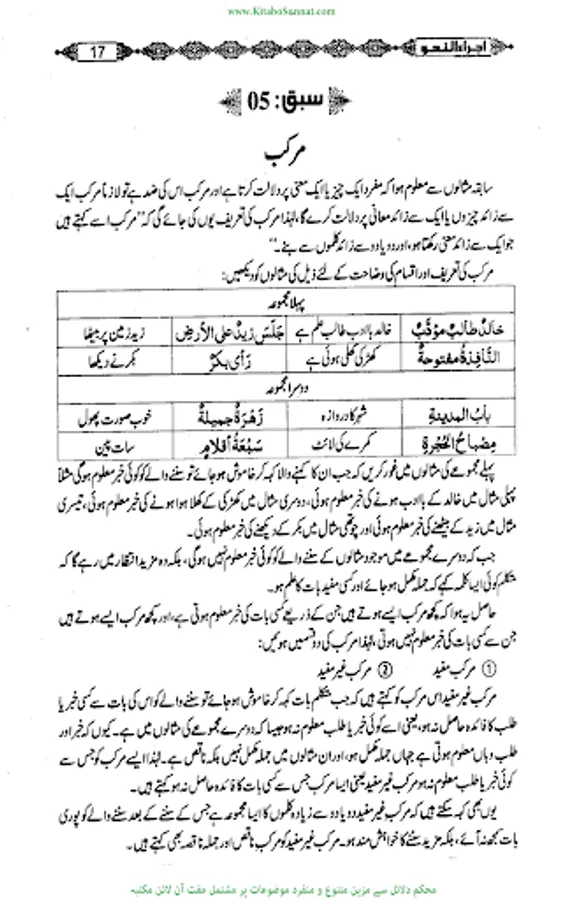 www.KitaboSunnat.com
اجراء النحو 17
سبق: 05
مرکب
سابقہ مثالوں سے معلوم ہوا کہ مفرد ایک چیز یا ایک معنی پر دلالت کرتا ہے اور مرکب اس کی ضد ہے تو لازماً مرکب ایک
سے زائد چیزوں یا ایک سے زائد معانی پر دلالت کرے گا، لہٰذا مرکب کی تعریف یوں کی جائے گی کہ "مرکب اسے کہتے ہیں
جو ایک سے زائد معنی رکھتا ہو، اور دو یا دو سے زائد کلموں سے بنے۔"
مرکب کی تعریف اور اقسام کی وضاحت کے لئے ذیل کی مثالوں کو دیکھیں:
پہلا مجموعہ
خَالِدٌ طَالِبٌ مُوَدَّبٌ خالد با ادب طالب علم ہے جَلَسَ زَيدٌ عَلى الأرْضِ زید زمین پر بیٹھا
النَّافِذَةُ مَفتوحةٌ کھڑکی کھلی ہوئی ہے رَأى بكرٌ بکر نے دیکھا
دوسرا مجموعہ
بابُ المدينةِ شہر کا دروازہ زَهْرَةٌ جميلةٌ خوب صورت پھول
مِصْباحُ الحُجْرةِ کمرے کی لائٹ سَبْعَةُ أقلامٍ سات پین
پہلے مجموعے کی مثالوں میں غور کریں کہ جب ان کا کہنے والا کہہ کر خاموش ہو جائے تو سننے والے کو کوئی خبر معلوم ہو گی مثلاً
پہلی مثال میں خالد کے با ادب ہونے کی خبر معلوم ہوئی، دوسری مثال میں کھڑکی کے کھلا ہوا ہونے کی خبر معلوم ہوئی، تیسری
مثال میں زید کے بیٹھنے کی خبر معلوم ہوئی اور چوتھی مثال میں بکر کے دیکھنے کی خبر معلوم ہوئی۔
جب کہ دوسرے مجموعے میں موجود مثالوں کے سننے والے کو کوئی خبر معلوم نہیں ہو گی، بلکہ وہ مزید انتظار میں رہے گا کہ
متکلم کوئی ایسا کلمہ کہے کہ جملہ مکمل ہو جائے اور کسی مفید بات کا علم ہو۔
حاصل یہ ہوا کہ کچھ مرکب ایسے ہوتے ہیں جن کے ذریعے کسی بات کی خبر معلوم ہوتی ہے، اور کچھ مرکب ایسے ہوتے ہیں
جن سے کسی بات کی خبر معلوم نہیں ہوتی، لہٰذا مرکب کی دو قسمیں ہوئیں:
① مرکب مفید ② مرکب غیر مفید
مرکب غیر مفید اس مرکب کو کہتے ہیں کہ جب متکلم بات کہہ کر خاموش ہو جائے تو سننے والے کو اس کی بات سے کسی خبر یا
طلب کا فائدہ حاصل نہ ہو، یعنی اسے کوئی خبر یا طلب معلوم نہ ہو جیسا کہ دوسرے مجموعے کی مثالوں میں ہے۔ کیوں کہ خبر اور
طلب وہاں معلوم ہوتی ہے جہاں جملہ مکمل ہو، اور ان مثالوں میں جملہ مکمل نہیں بلکہ ناقص ہے۔ لہٰذا ایسے مرکب کو جس سے
کوئی خبر یا طلب معلوم نہ ہو مرکب غیر مفید یعنی ایسا مرکب جس سے کسی بات کا فائدہ حاصل نہ ہو کہتے ہیں۔
یوں بھی کہہ سکتے ہیں کہ مرکب غیر مفید دو یا دو سے زیادہ کلموں کا ایسا مجموعہ ہے جس کے سننے کے بعد سننے والے کو پوری
بات سمجھ نہ آئے، بلکہ مزید سننے کا خواہش مند ہو۔ مرکب غیر مفید کو مرکب ناقص اور جملہ ناقصہ بھی کہتے ہیں۔
محکم دلائل سے مزین متنوع و منفرد موضوعات پر مشتمل مفت آن لائن مکتبہ